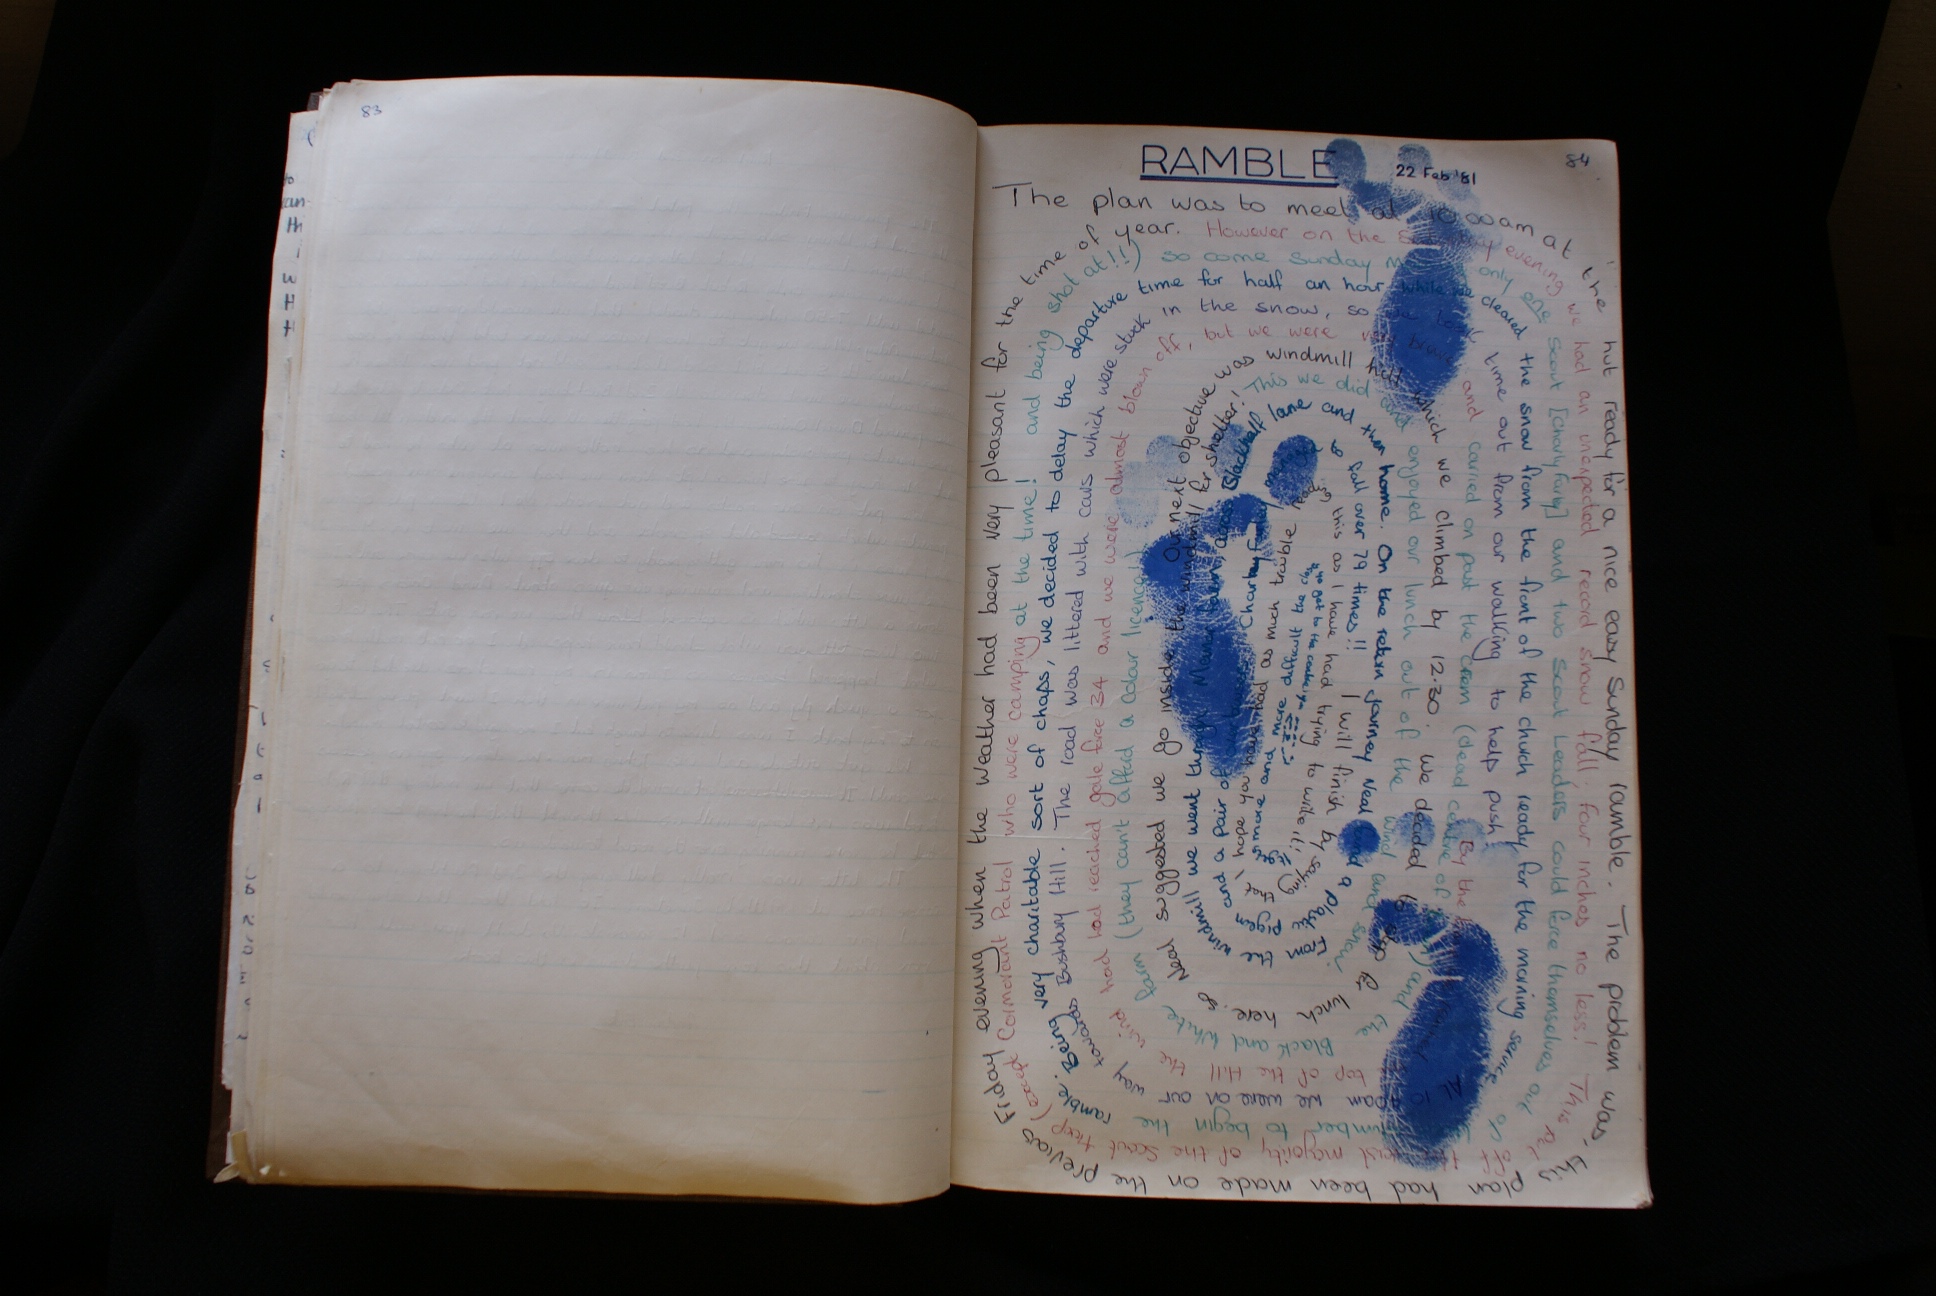 83
RAMBLE
22 Feb '81
84
The plan was to meet at 10.00am at the
hut ready for a nice easy Sunday ramble. The problem was
this plan had been made on the previous
Friday evening when the weather had been very pleasant for the time of year.
However on the evening we
had an unexpected record snow fall; four inches no less! This put
off the majority of the Scout troop (except
Cormorant Patrol who were camping at the time! and being shot at!!)
so come Sunday only one
Scout [Charly Farly] and two Scout Leaders could force themselves out
of number to begin the ramble.
Being very charitable sort of chaps, we decided to delay the departure time for half an hour while we cleared
the snow from the front of the church ready for the morning service.
At 10 we were on our way
towards Bushbury Hill. The road was littered with cars which were stuck in the snow, so
time out from our walking to help push.
By the top of the Hill the wind
had reached gale force 34 and we were almost blown off, but we were
and carried on past the crem (dead centre of and the
Black and White farm (they can't afford a color licence)
Our next objective was windmill hill which we climbed by 12.30. We decided to stop for lunch here.
Neal suggested we go inside the windmill for shelter!
This we did and enjoyed our lunch out of the wind and snow.
windmill we went
across Blackhalf lane and then home. On the return journey Neal and a
and a pair of
Charley
fall over 79 times!! I will finish by saying
I hope you have had as much trouble
this as I have had trying to write it!
more and more difficult the
you get to the